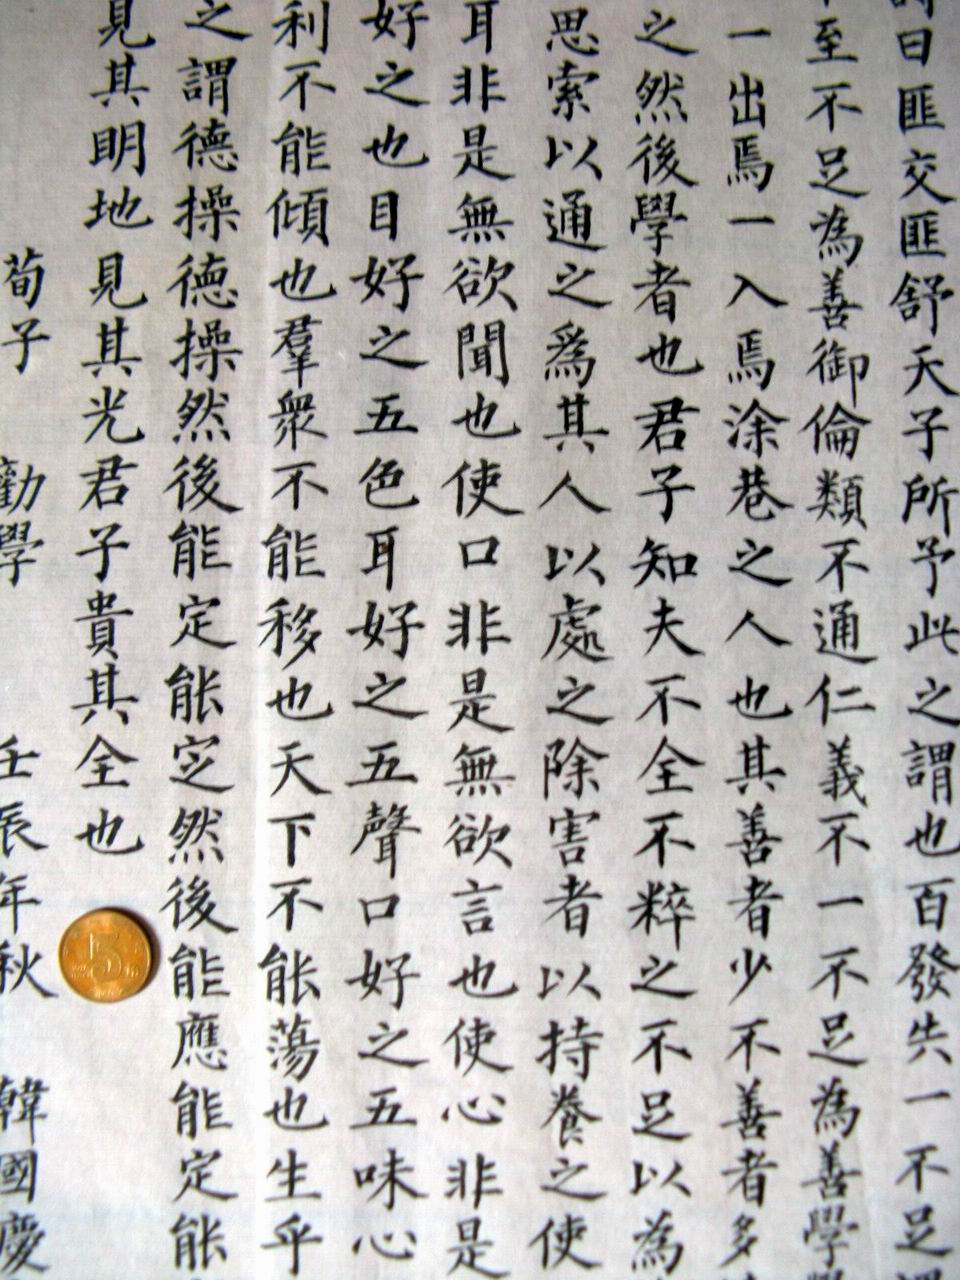 曰匪交匪舒天子所予此之謂也百發失一不足
至不足為善御倫類不通仁義不一不足為善學
一出焉一入焉涂巷之人也其善者少不善者多
之然後學者也君子知夫不全不粹之不足以為
思索以通之爲其人以處之除害者以持養之使
耳非是無欲聞也使口非是無欲言也使心非是
好之也目好之五色耳好之五聲口好之五味心
利不能傾也羣衆不能移也天下不能蕩也生乎
之謂德操德操然後能定能定然後能應能定能
見其明地見其光君子貴其全也
荀子 勸學 壬辰年秋 韓國慶
5